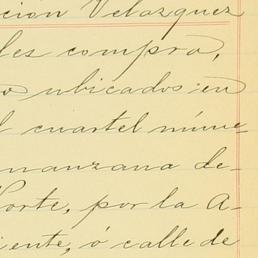 cion Velazquez
les compra,
o ubicados en
l cuartel núme-
manzana de-
Norte, por la A-
iente, ó calle de